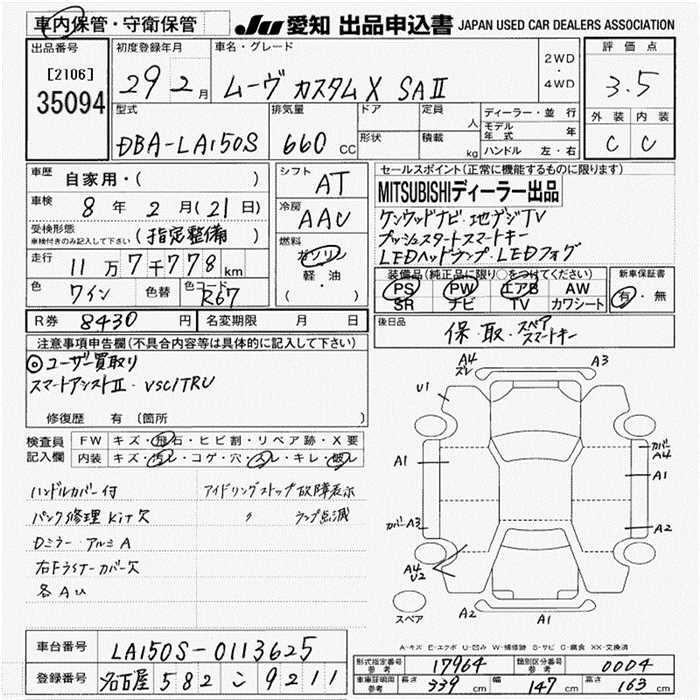 車内保管・守衛保管
JU 愛知 出品申込書 JAPAN USED CAR DEALERS ASSOCIATION
出品番号
[2106]
35094
初度登録年月
29 2月
車名・グレード
ムーヴ カスタムX SAⅡ
2WD
・
4WD
評価点
3.5
外装 内装
C C
型式
DBA-LA150S
排気量
660 CC
ドア
形状
定員
人
積載
kg
ディーラー・並行
モデル年式 年
ハンドル 左・右
車歴
自家用・( )
車検
8年 2月(21日)
受検形態
車検付きのみ記入して下さい
(指定整備)
走行
11万7千778km
色
ワイン
色替
色コード
R67
シフト
AT
冷房
AAC
燃料
ガソリン
軽・油
( )
セールスポイント(正常に機能するものに限ります)
MITSUBISHIディーラー出品
ケンウッドナビ・地デジTV
プッシュスタートスマートキー
LEDヘッドランプ・LEDフォグ
装備品(純正品に限り○をつけてください)
PS PW エアB AW
SR ナビ TV カワシート
新車保証書
有・無
R券 8430円
名変期限 月 日
後日品
保・取・スペアスマートキー
注意事項申告欄(不具合内容等は具体的に記入して下さい)
◎ユーザー買取り
スマートアシストⅡ・VSC/TRC
修復歴 有 (箇所
検査員記入欄
FW キズ・飛石・ヒビ割・リペア跡・X要
内装 キズ・汚レ・コゲ・穴・スレ・キレ・破レ
ハンドルカバー付 アイドリングストップ故障表示
パンク修理Kit欠 〃 ランプ点滅
Dミラー・アルミA
右ドライナーカバー欠
各AU
A4
ズレ
A3
U1
A1
カバーA4
A1
カバーA3
A2
A4
U2
スペア
A2
A1
A-キズ E-エクボ U-凹み W-補修跡 S-サビ C-腐食 XX-交換済
車台番号
LA150S-0113625
登録番号
名古屋 582 こ 9211
形式指定番号参考
17964
類別区分番号参考
0004
車体証明用参考
長さ 339cm 幅 147cm 高さ 163cm